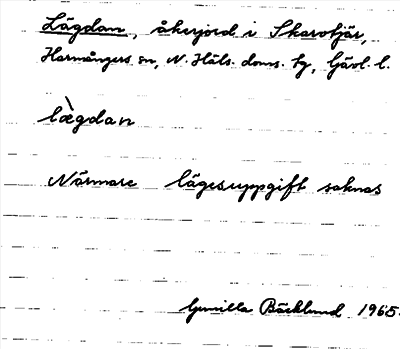 Lägdan, åkerjord i Skarvtjär,
Harmångers sn, N. Häls. doms. tg, Gävl. l.
læ̀gdan
Närmare lägesuppgift saknas
Gunilla Bäcklund 1965.